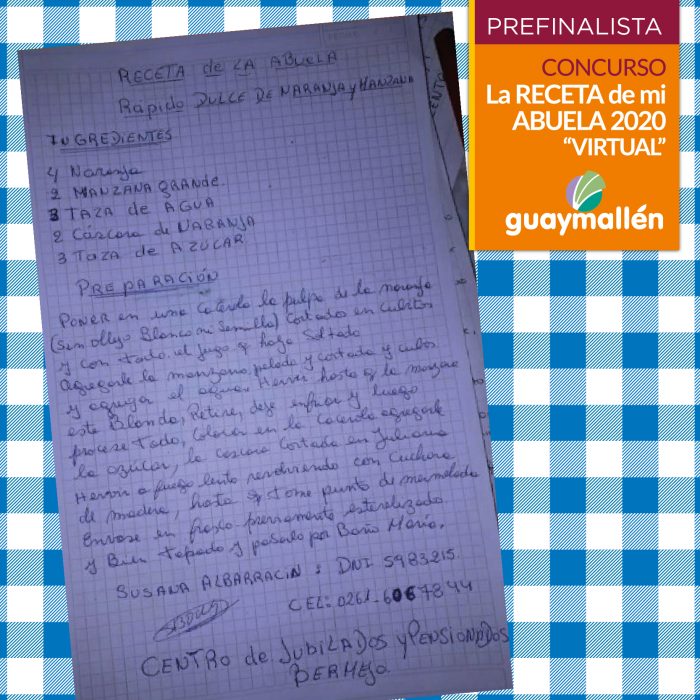 PREFINALISTA
CONCURSO
La RECETA de mi
ABUELA 2020
“VIRTUAL”
guaymallén
RECETA de LA ABUELA
Rápido DULCE DE NARANJA y MANZANA
INGREDIENTES
4 Naranja
2 MANZANA GRANDE.
3 TAZA de AGUA
2 Cáscara de NARANJA
3 Taza de AZÚCAR
PREPARACIÓN
PONER en una Caterola la pulpa de la naranja
(sin ollejo Blanco ni Semilla) Cortados en cubitos
y con todo el jugo q haya Soltado
Agregarle la manzana pelada y cortada y cubos
y agregar el agua. Hervir hasta q la manzana
este Blanda, Retirar, deje enfriar y luego
procese todo, Colocar en la Cacerola agregarle
la azúcar, la cascara Cortada en Juliana
Hervir a fuego lento revolviendo con cuchara
de madera, hasta q tome punto de mermelada
Envase en frasco previamente esterelizado
y Bien Tapado y pasarlo por Baño María.
SUSANA ALBARRACIN : DNI 5983215.
CEL: 0261-6067844
CENTRO de JUBILADOS y PENSIONADOS
BERMEJO.